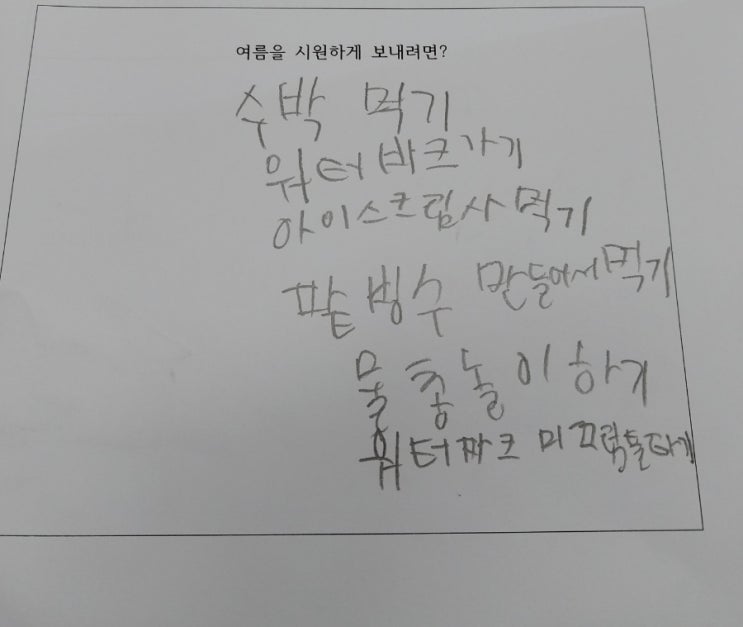 여름을 시원하게 보내려면?
수박 먹기
워터바크가기
아이스크림사먹기
팥빙수 만들어서먹기
물총놀이하기
워터파크 미끄럼틀타기